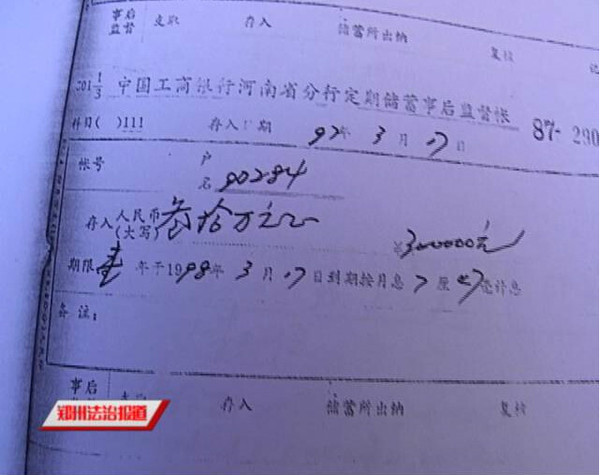 事后
监督 支取 存入 储蓄所出纳 复核 记
201 1/3 中国工商银行河南省分行定期储蓄事后监督帐 87- 290
科目( )111 存入日期 97年 3 月 17日
帐号 户名 90284
存入人民币(大写) 叁拾万元 ¥300000元
期限 壹 年于1998年 3 月 17日到期按月息 7 厘 47毫计息
备注:
事后
存入 储蓄所出纳 复核
郑州法治报道